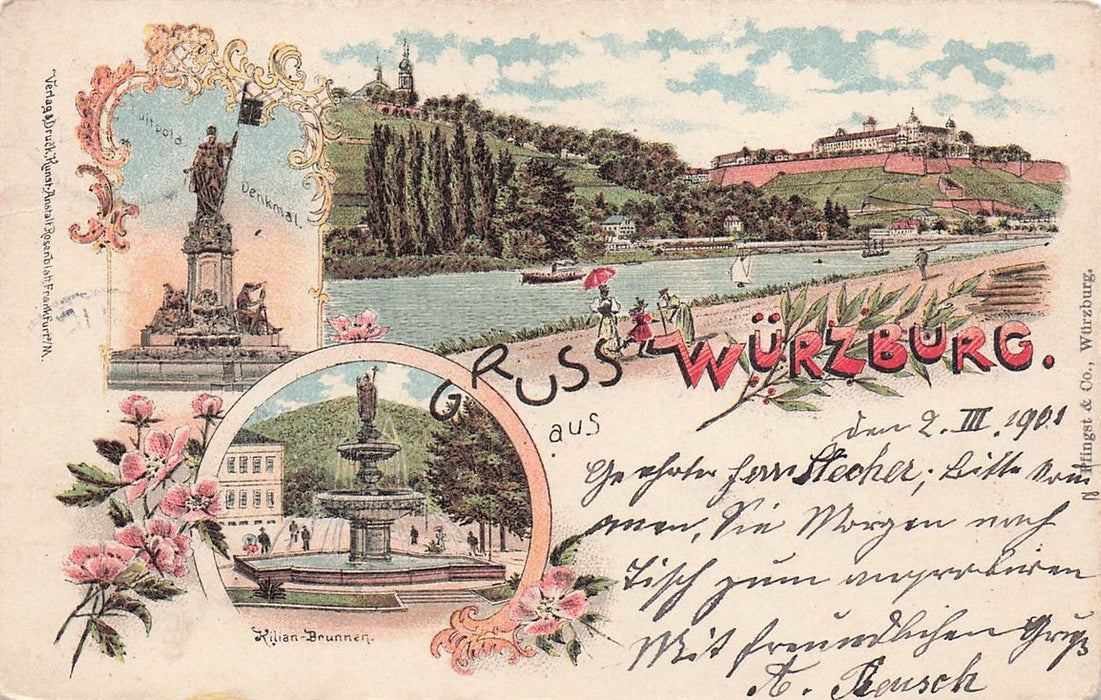 Verlag & Druck Kunst-Anstalt Rosenblatt Frankfurt a/M.
Luitpold
Denkmal.
GRUSS
aus
WÜRZBURG.
Kilian-Brunnen.
Pfingst & Co., Würzburg.
den 2. III. 1901
Geehrter Herr Stecher; Bitte kom
men, Sie Morgen nach
Tisch zum anprobiren
Mit freundlichen Gruß
A. Reusch